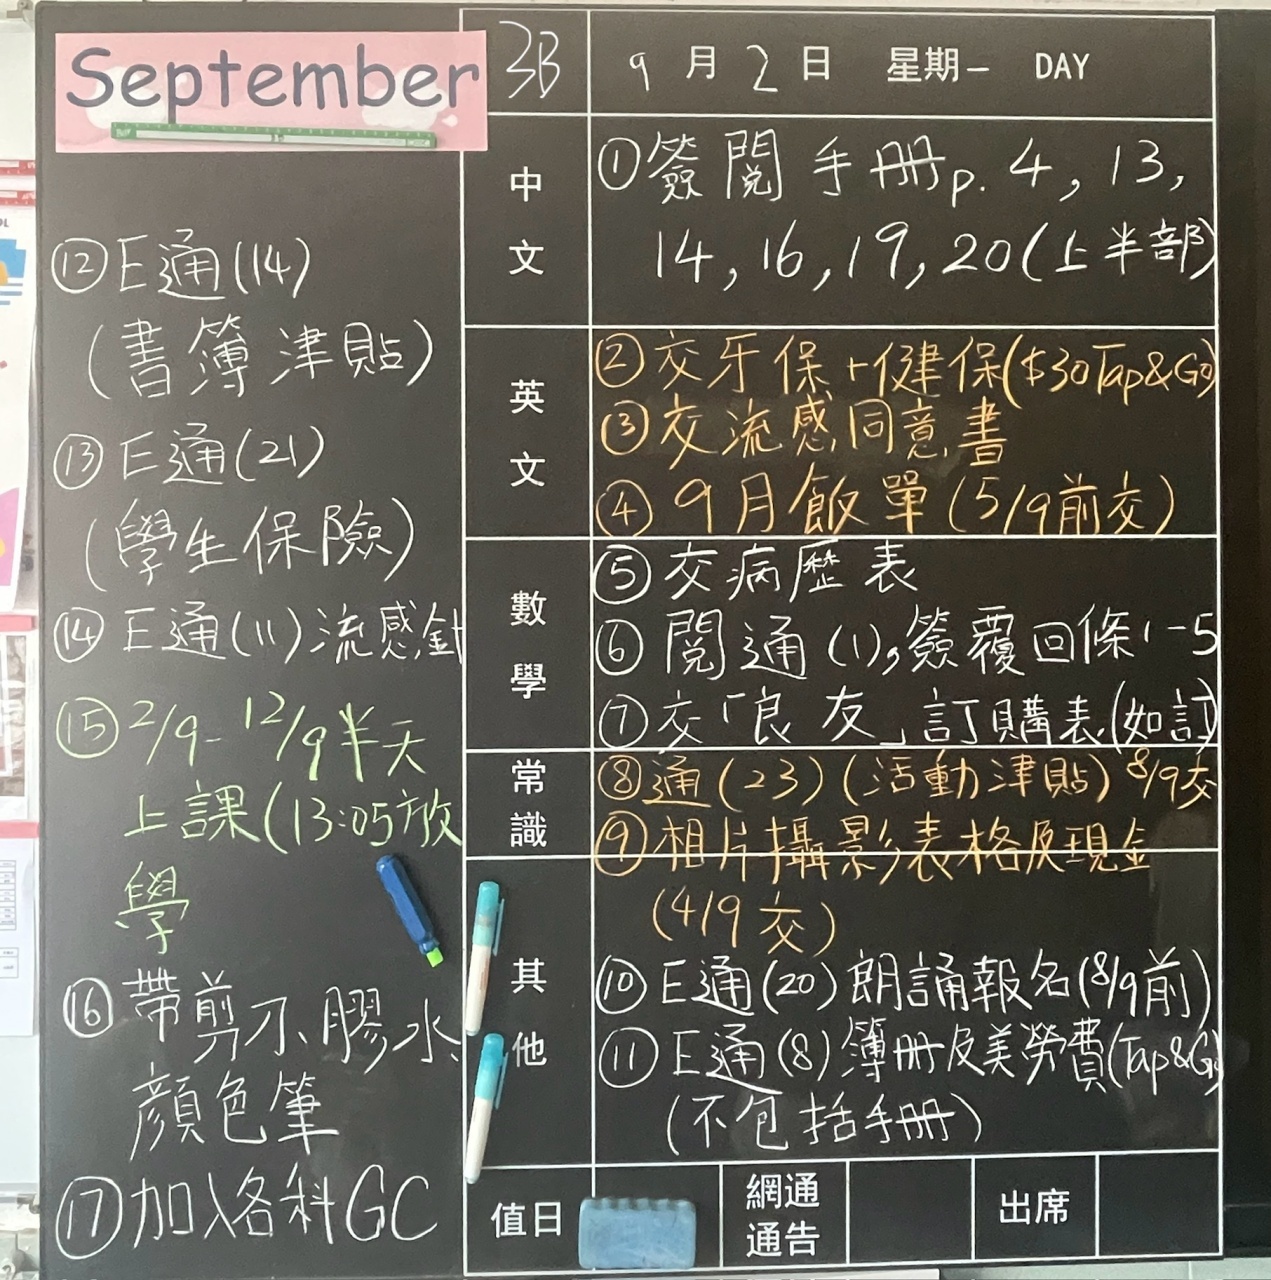 September
3B
9月2日 星期一 DAY
中文
①簽閱手冊p. 4, 13,
14, 16, 19, 20(上半部)
英文
②交牙保+健保($30Tap&Go)
③交流感同意書
④9月飯單(5/9前交)
數學
⑤交病歷表
⑥閱通(1),簽覆回條1-5
⑦交「良友」訂購表(如訂)
常識
⑧通(23)(活動津貼)8/9交
⑨相片攝影表格及現金
(4/9交)
其他
⑩E通(20)朗誦報名(8/9前)
⑪E通(8)簿冊及美勞費(Tap&Go)
(不包括手冊)
值日
網通
通告
出席
⑫E通(14)
(書簿津貼)
⑬E通(21)
(學生保險)
⑭E通(11)流感針
⑮2/9-12/9半天
上課(13:05放
學
⑯帶剪刀、膠水、
顏色筆
⑰加入各科GC